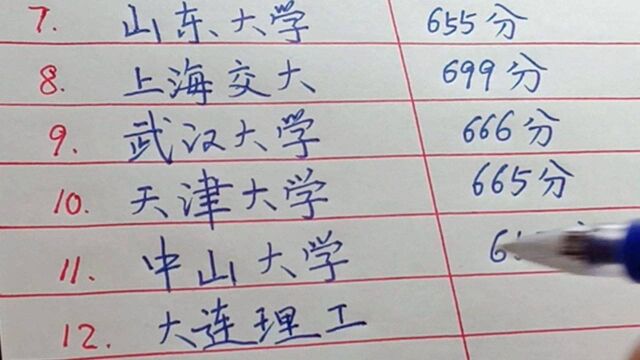 7. 山东大学 655分
8. 上海交大 699分
9. 武汉大学 666分
10. 天津大学 665分
11. 中山大学
12. 大连理工